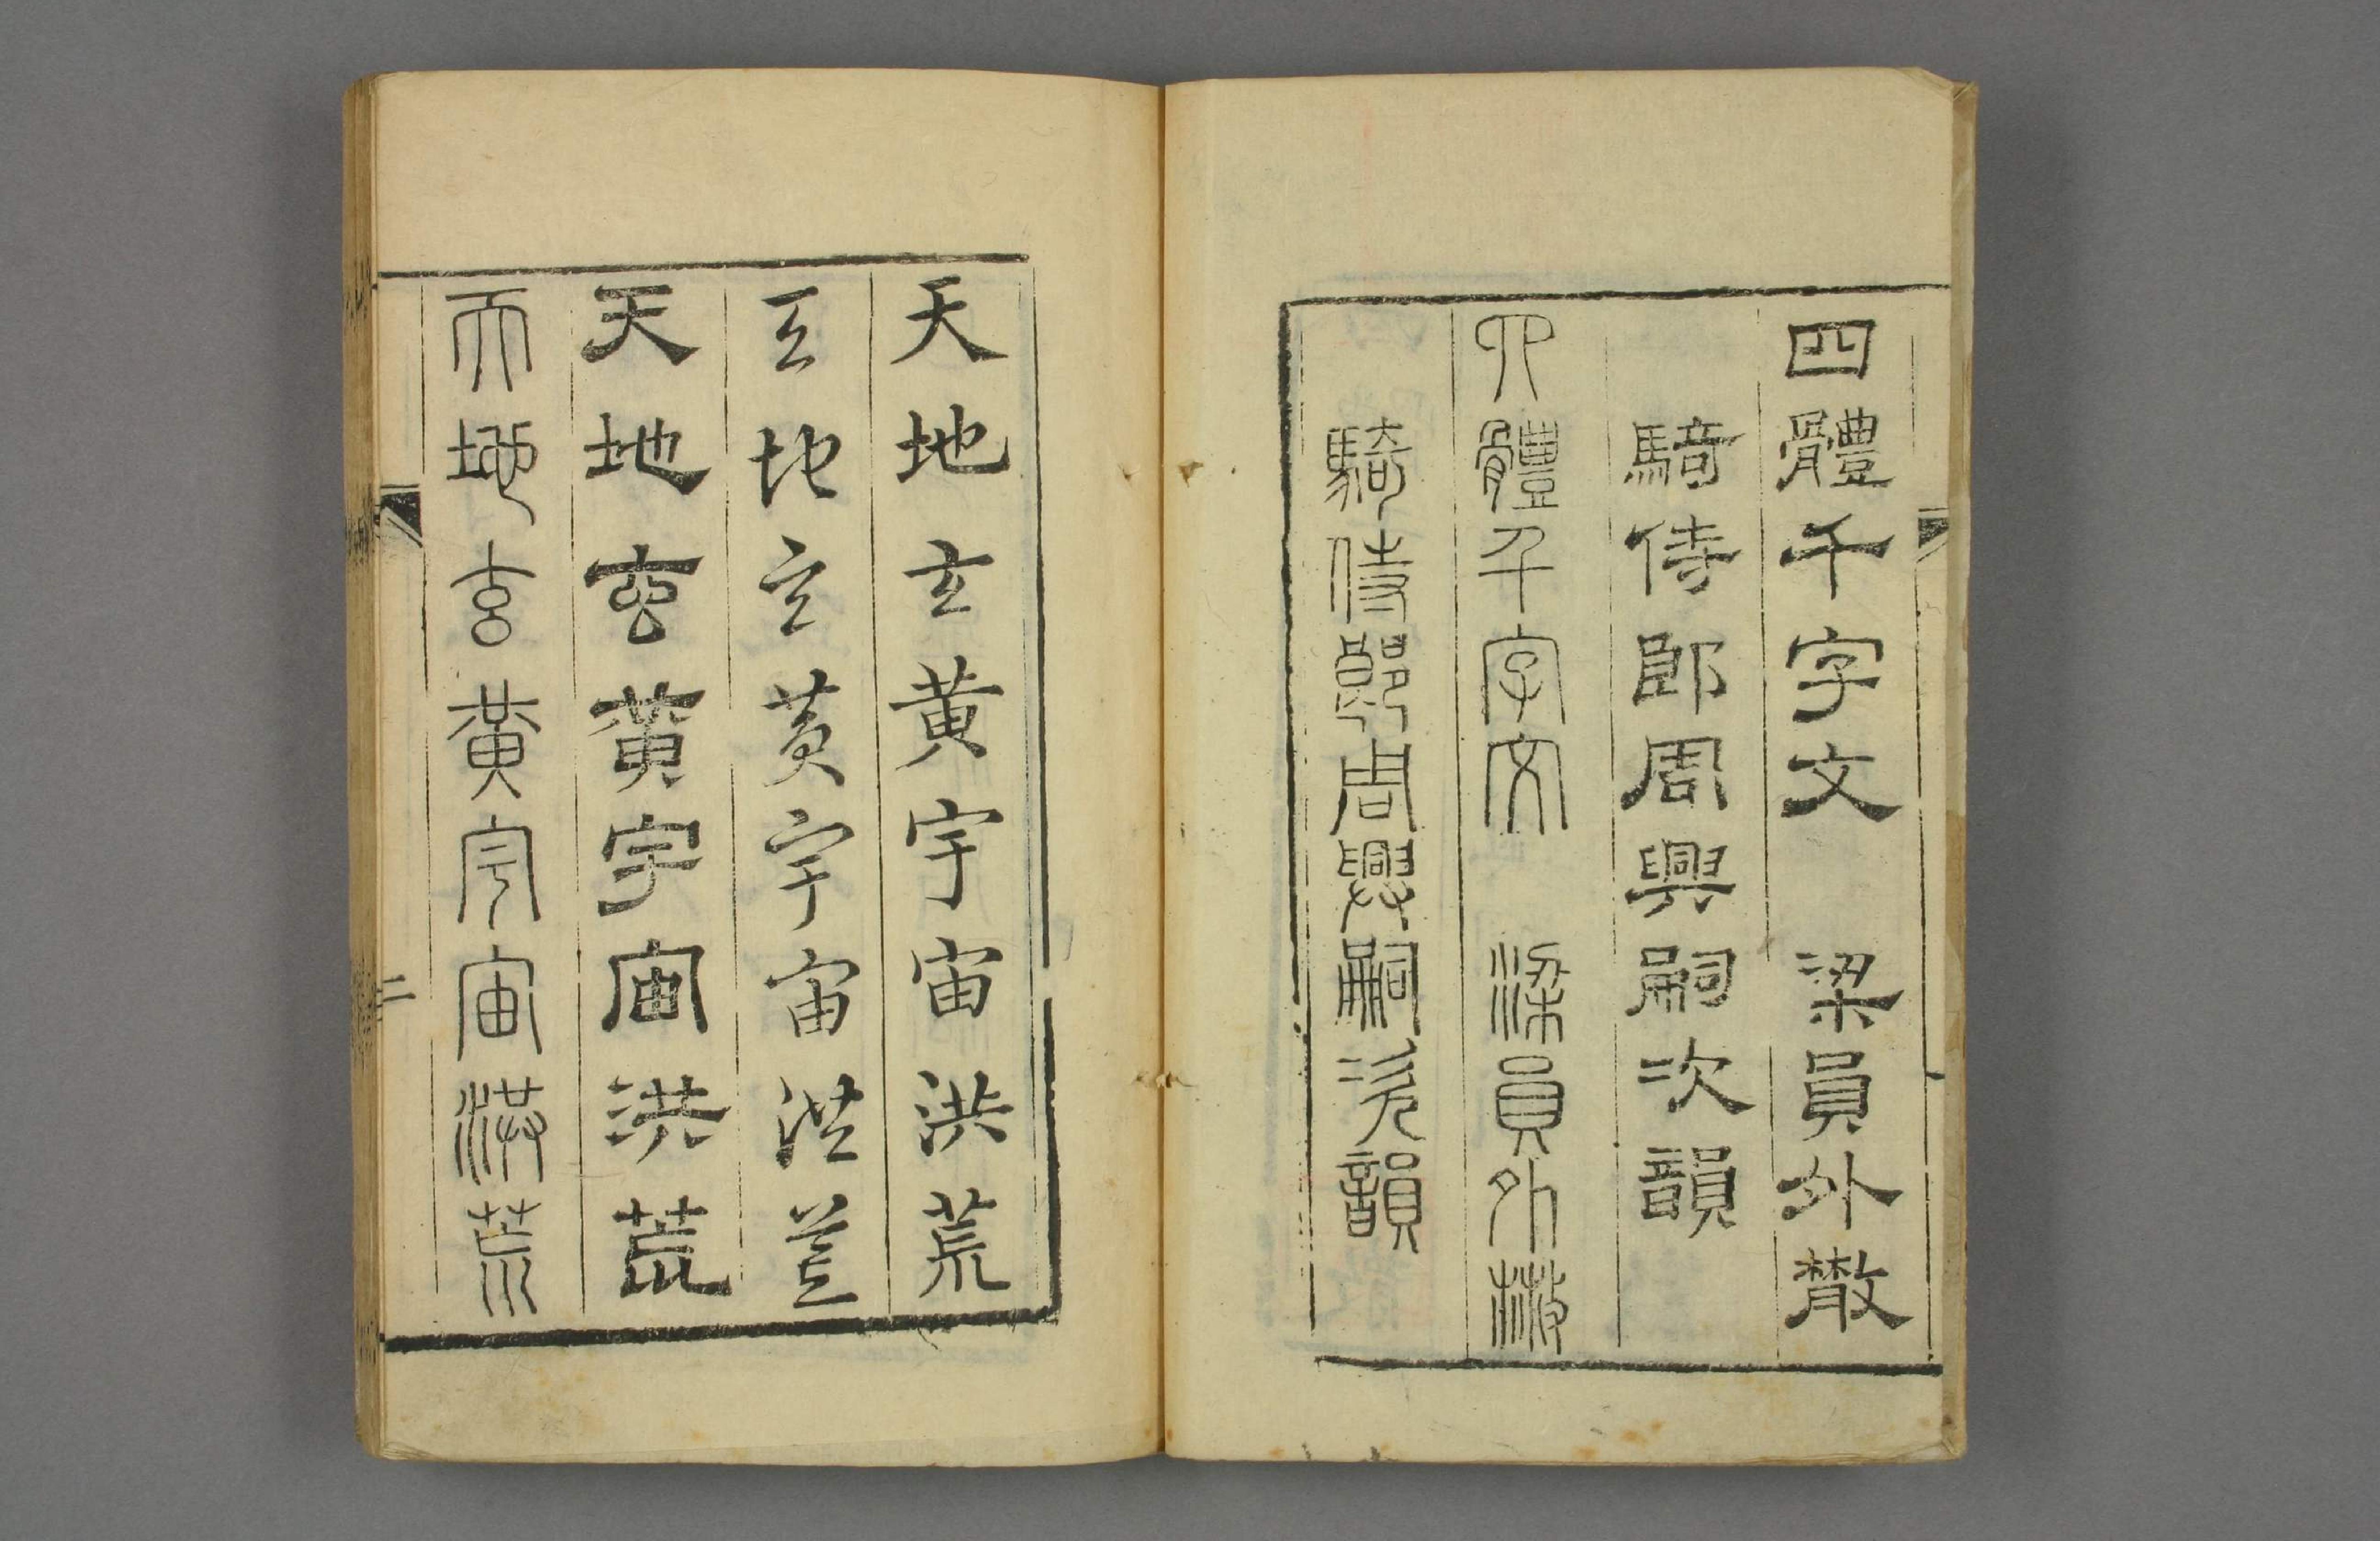 四體千字文 梁員外散
騎侍郎周興嗣次韻
四體千字文 梁員外散
騎侍郎周興嗣次韻
天地玄黃宇宙洪荒
天地玄黃宇宙洪荒
天地玄黃宇宙洪荒
天地玄黃宇宙洪荒
二